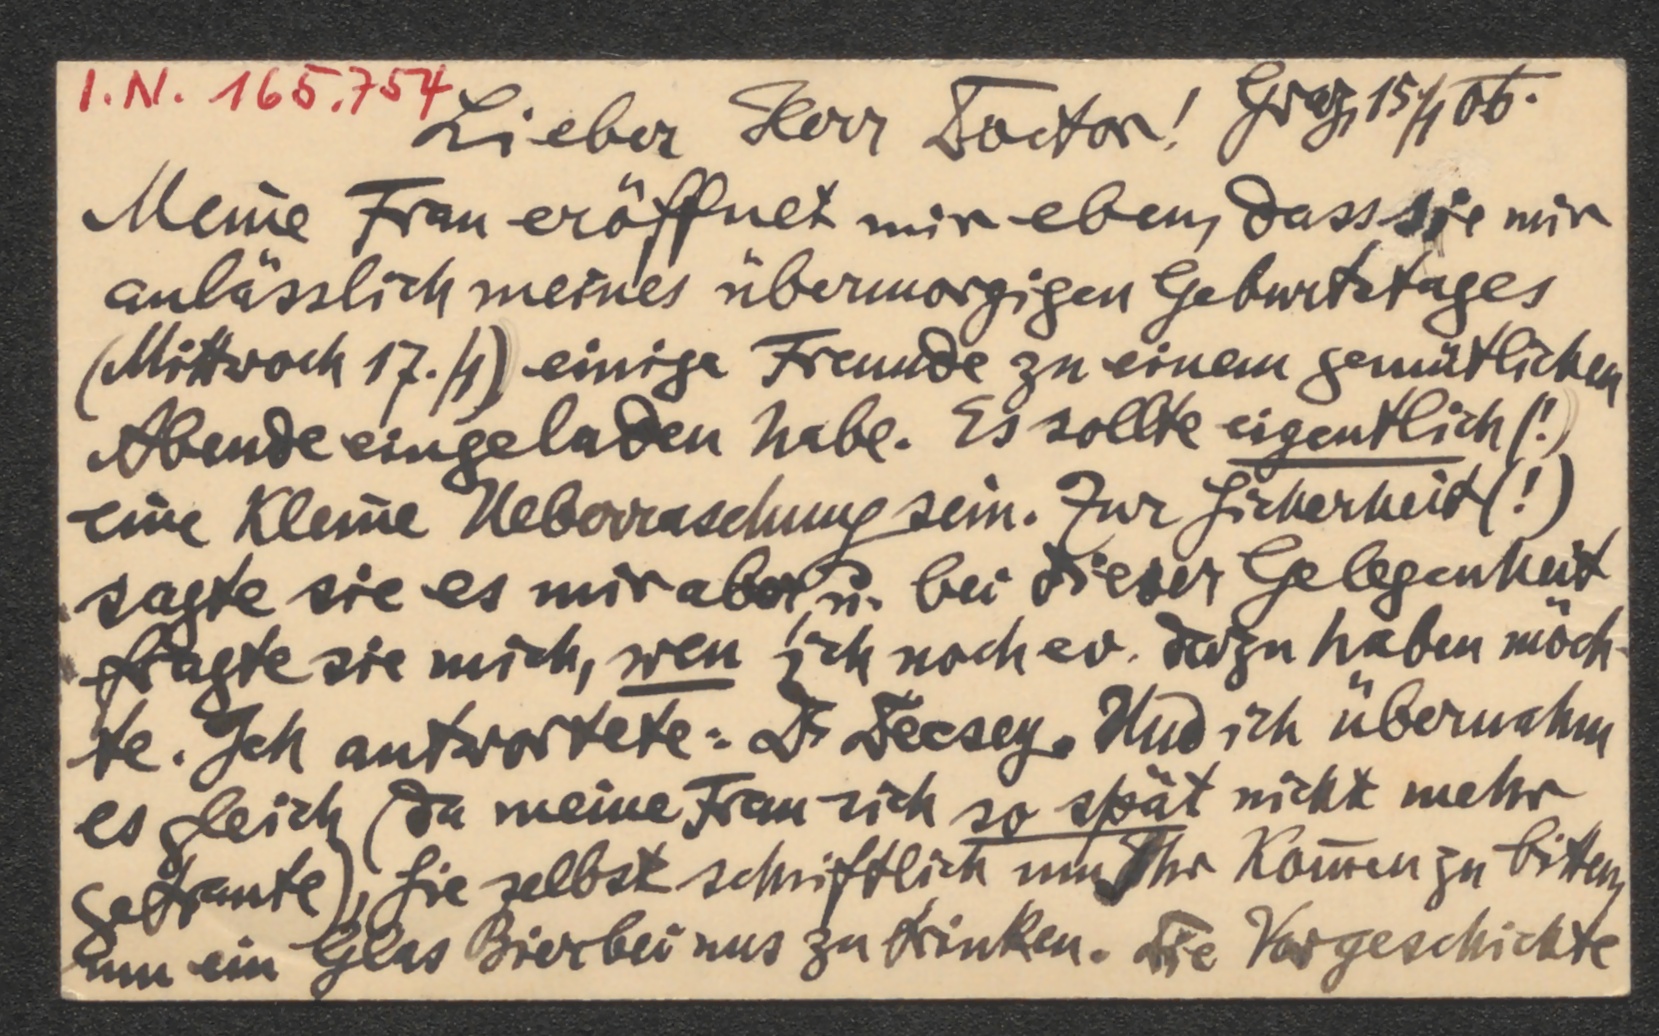 I.N. 165.754
Lieber Herr Doctor! Graz, 15/1 06.
Meine Frau eröffnet mir eben, dass sie mir
anlässlich meines übermorgigen Geburtstages
(Mittwoch 17./1) einige Freunde zu einem gemütlichen
Abende eingeladen habe. Es sollte eigentlich (!)
eine kleine Ueberraschung sein. Zur Sicherheit (!)
sagte sie es mir aber u. bei dieser Gelegenheit
fragte sie mich, wen ich noch ev. dazu haben möch-
te. Ich antwortete: Dr Decsey. Und ich übernahm
es gleich (da meine Frau sich so spät nicht mehr
getraute), Sie selbst schriftlich um Ihr Kom̄en zu bitten,
um ein Glas Bier bei uns zu trinken. Die Vorgeschichte